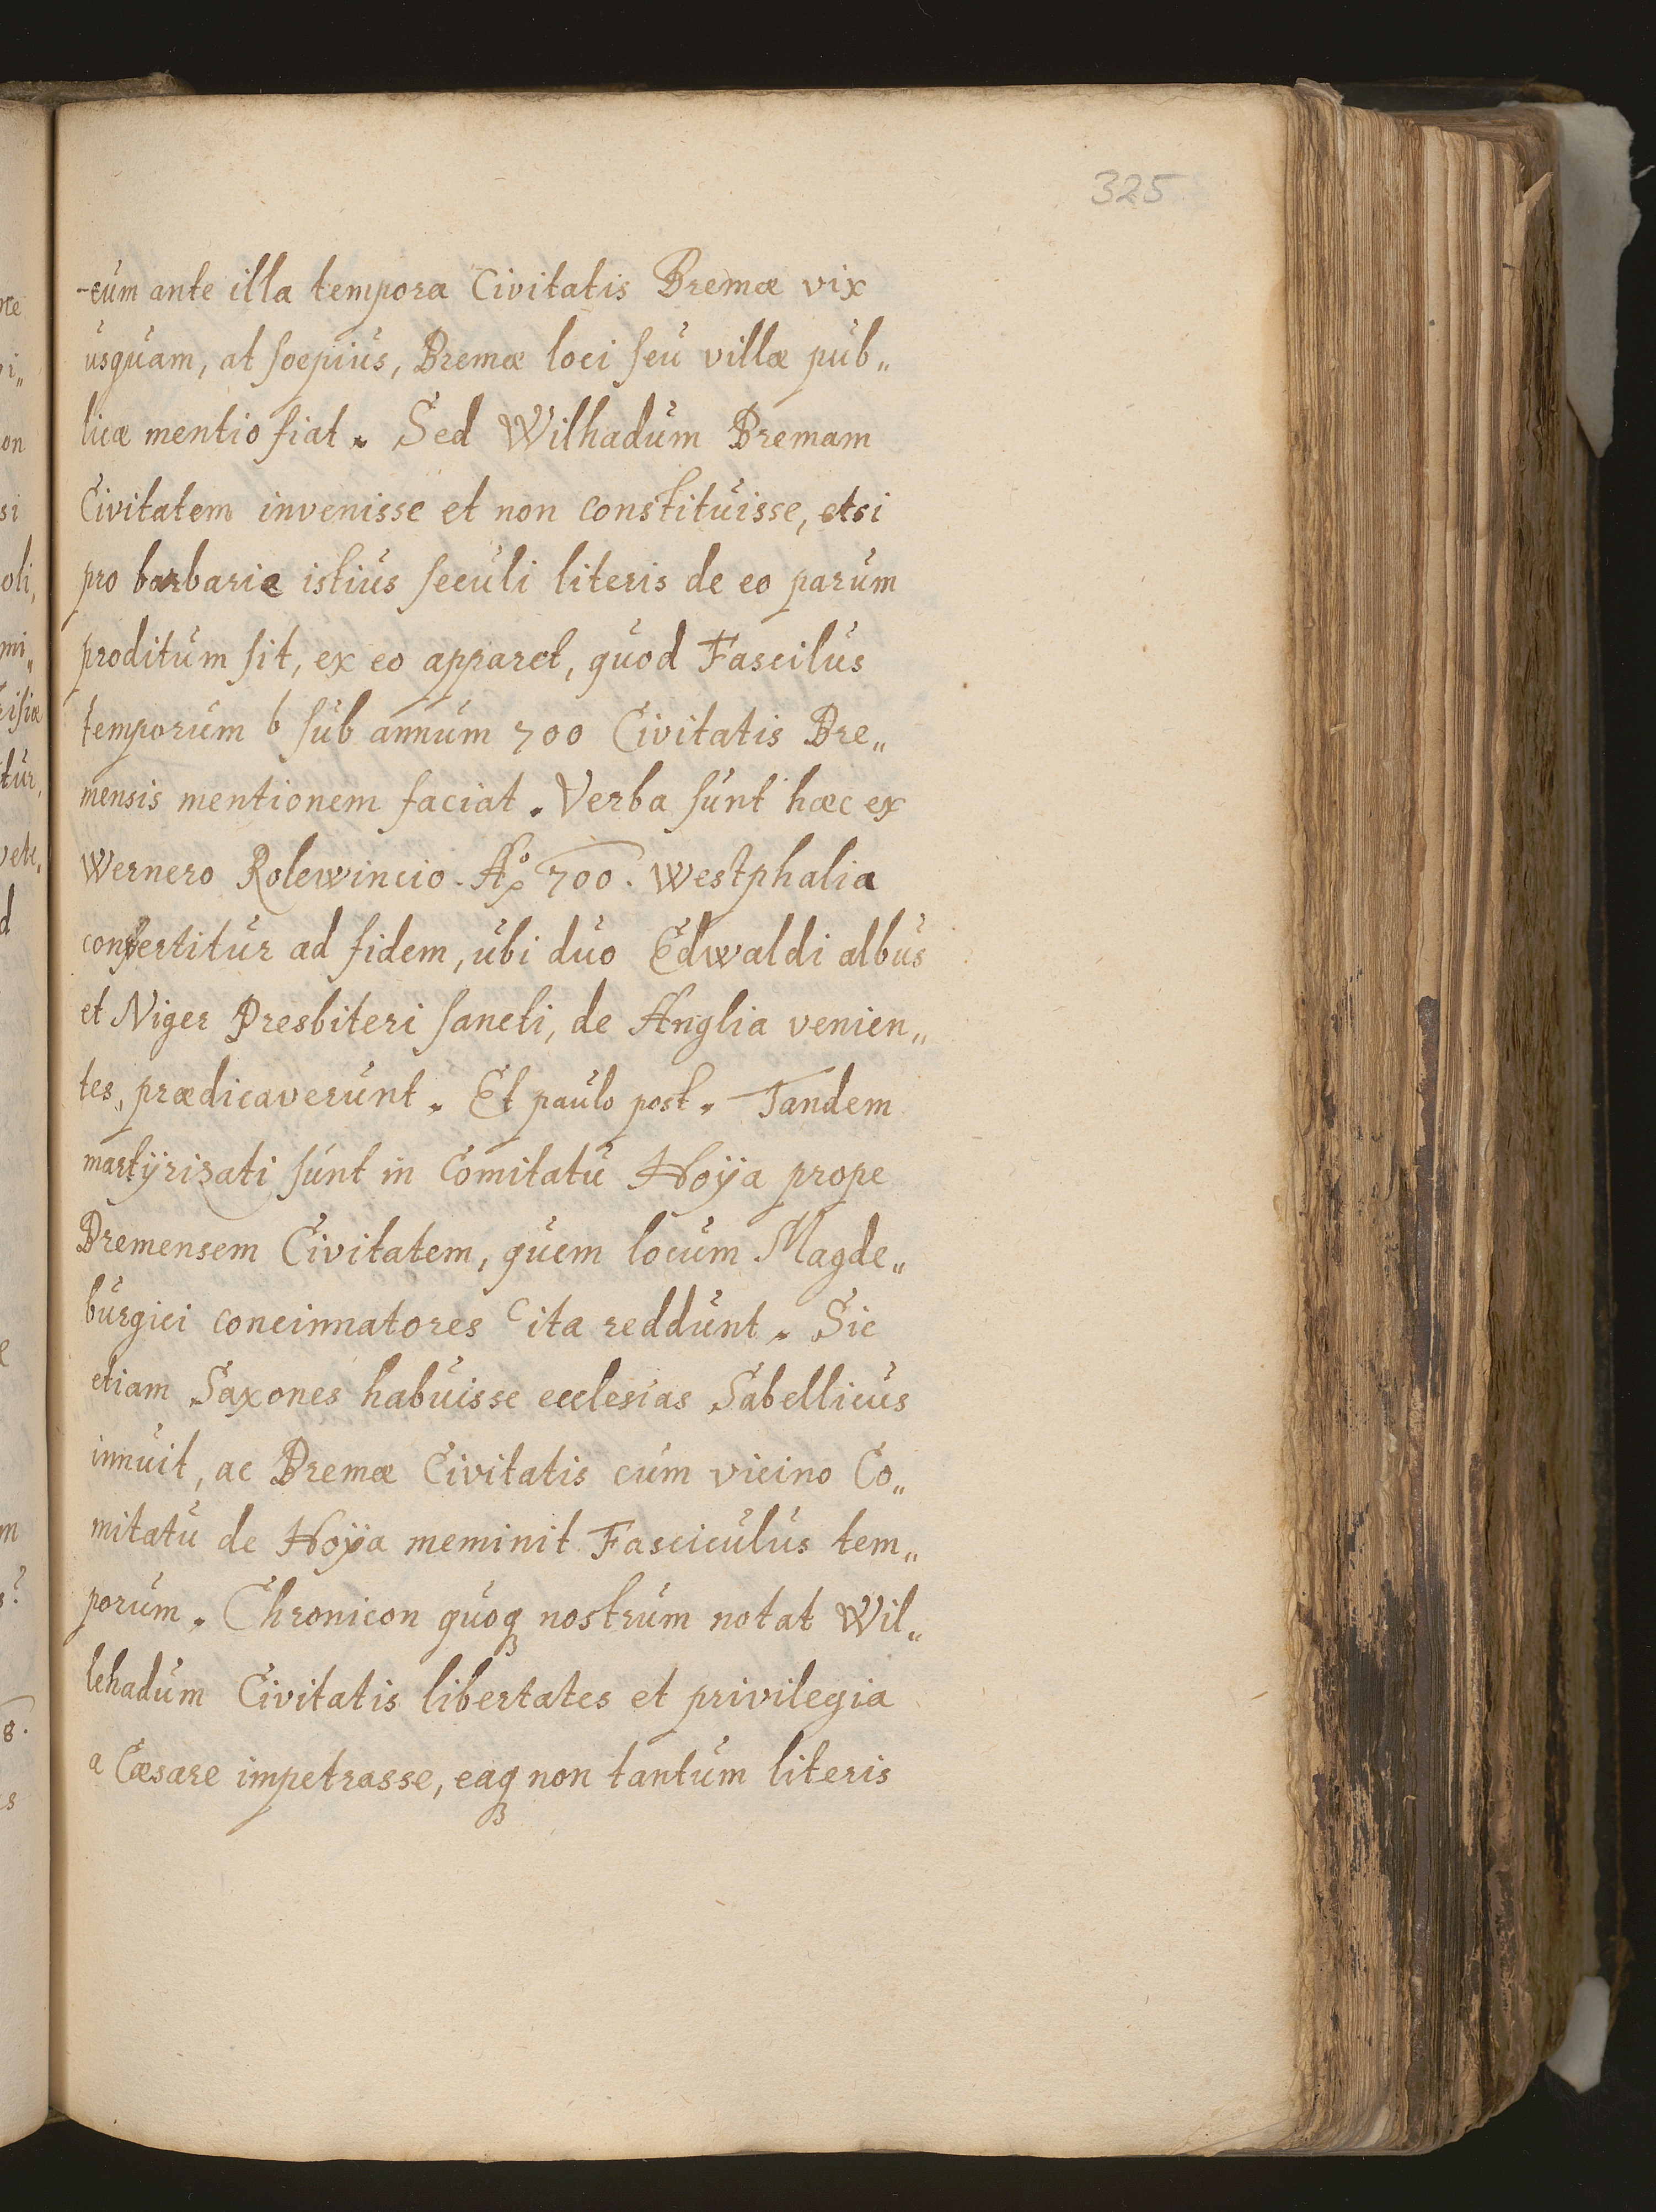 325
-cum ante illa tempora Civitatis Bremæ vix
usquam, at sœpius, Bremæ loci seu villæ pub„
licæ mentio fiat. Sed Wilhadum Bremam
Civitatem invenisse et non constituisse, etsi
pro barbarie istius seculi literis de eo parum
proditum sit, ex eo apparet, quod Fascilus
temporum b sub annum 700 Civitatis Bre„
mensis mentionem faciat. Verba sunt hæc ex
Wernero Rolewincio. Aº 700. Westphalia
confertitur ad fidem, ubi duo Edwaldi albus
et Niger Presbiteri sancti, de Anglia venien„
tes, prædicaverunt. Et paulo post. Tandem
martÿrizati sunt in Comitatu Hoÿa prope
Bremensem Civitatem, quem locum Magde„
burgici concinnatores c ita reddunt. Sic
etiam Saxones habuisse ecclesias Sabellicus
innuit, ac Bremæ Civitatis cum vicino Co„
mitatu de Hoÿa meminit Fasciculus tem„
porum. Chronicon quoqꝫ nostrum notat Wil„
lehadum Civitatis libertates et privilegia
a Cæsare impetrasse, eaqꝫ non tantum literis